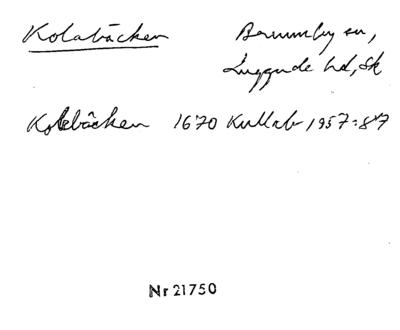 Kolabäcken Brunnby sn,
Luggude hd, Sk
Kolebäcken 1670 Kullab 1957:87
Nr 21750